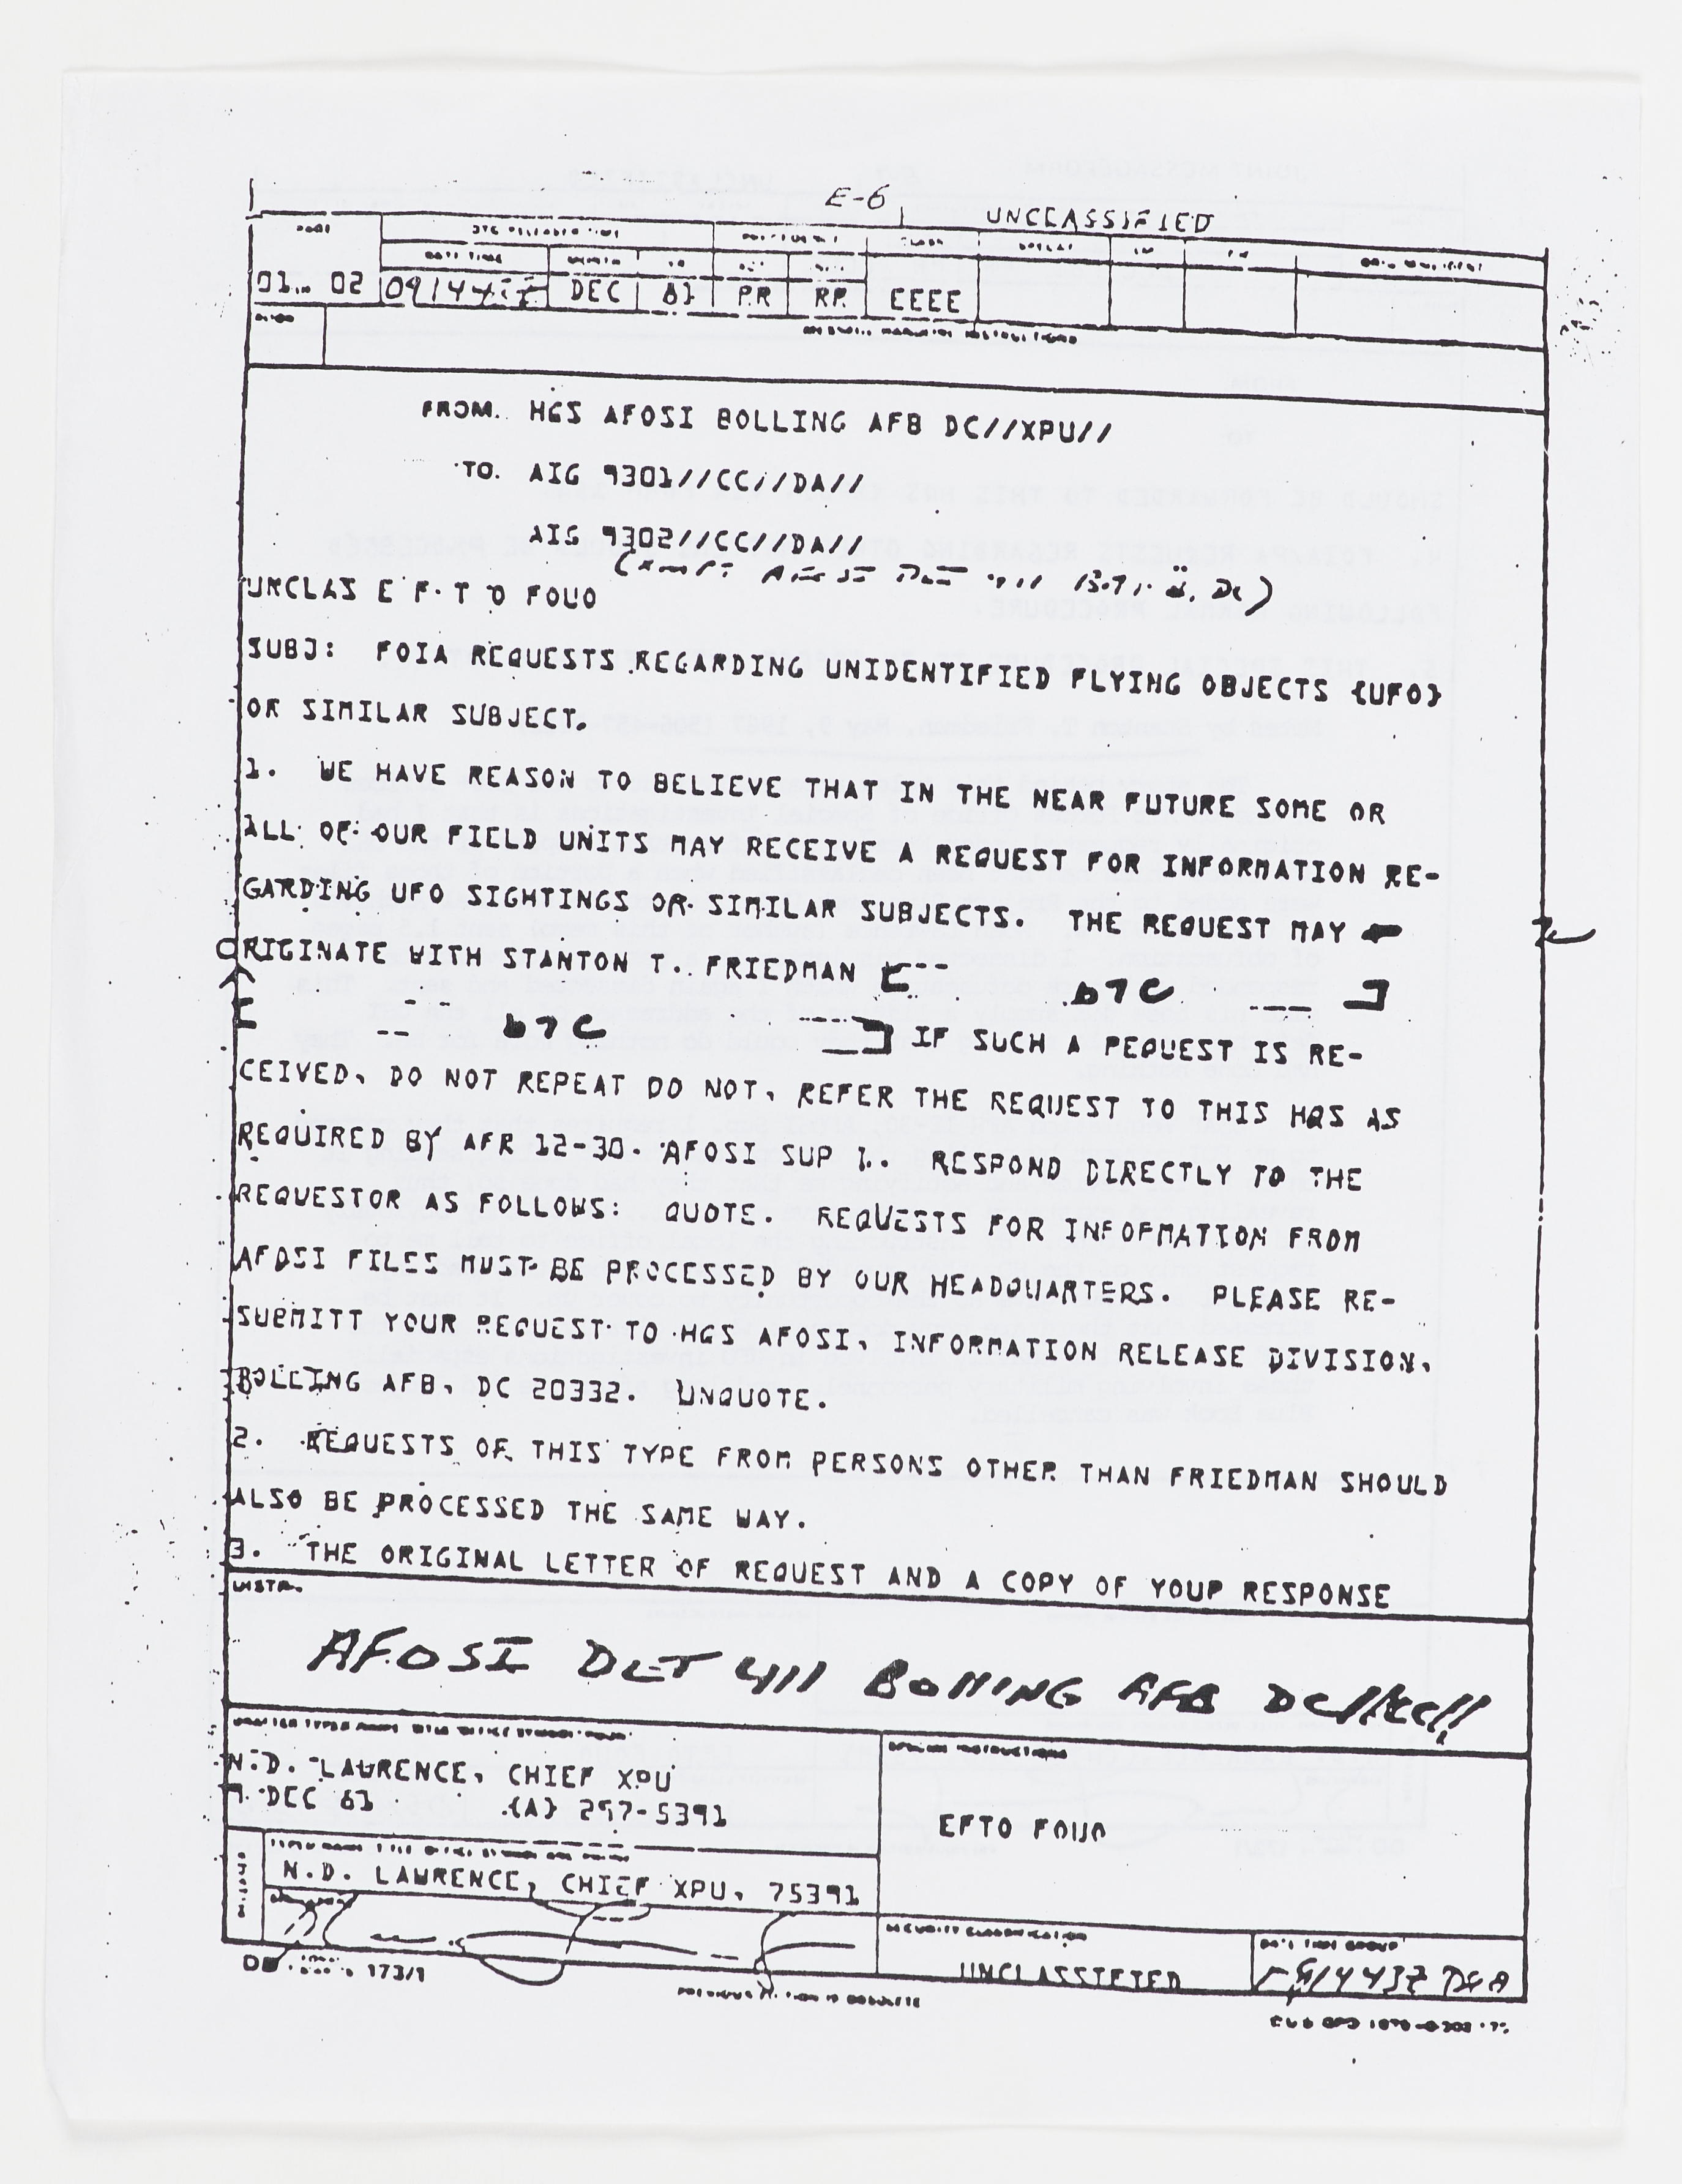 E-6
UNCLASSIFIED
PAGE
DATE TIME MONTH
01 02 DEC 81 PR RR EEEE
FROM. HQS AFOSI BOLLING AFB DC//XPU//
TO. AIG 9301//CC//DA//
AIG 9302//CC//DA//
UNCLAS E F T O FOUO
SUBJ: FOIA REQUESTS REGARDING UNIDENTIFIED FLYING OBJECTS {UFO}
OR SIMILAR SUBJECT.
1. WE HAVE REASON TO BELIEVE THAT IN THE NEAR FUTURE SOME OR
ALL OF OUR FIELD UNITS MAY RECEIVE A REQUEST FOR INFORMATION RE-
GARDING UFO SIGHTINGS OR SIMILAR SUBJECTS. THE REQUEST MAY
ORIGINATE WITH STANTON T. FRIEDMAN [ b7C ]
[ b7C ] IF SUCH A REQUEST IS RE-
CEIVED, DO NOT REPEAT DO NOT, REFER THE REQUEST TO THIS HQS AS
REQUIRED BY AFR 12-30. AFOSI SUP 1. RESPOND DIRECTLY TO THE
REQUESTOR AS FOLLOWS: QUOTE. REQUESTS FOR INFORMATION FROM
AFOSI FILES MUST BE PROCESSED BY OUR HEADQUARTERS. PLEASE RE-
SUBMITT YOUR REQUEST TO HQS AFOSI, INFORMATION RELEASE DIVISION,
BOLLING AFB, DC 20332. UNQUOTE.
2. REQUESTS OF THIS TYPE FROM PERSONS OTHER THAN FRIEDMAN SHOULD
ALSO BE PROCESSED THE SAME WAY.
3. THE ORIGINAL LETTER OF REQUEST AND A COPY OF YOUR RESPONSE
DISTR.
AFOSI DET 411 BOLLING AFB DC//CC//
N.D. LAWRENCE, CHIEF XPU
9 DEC 81 {A} 297-5391
SPECIAL INSTRUCTIONS
EFTO FOUO
N.D. LAWRENCE, CHIEF XPU, 75391
SECURITY CLASSIFICATION
UNCLASSIFIED
DATE TIME GROUP
DD 173/1
PREVIOUS EDITION IS OBSOLETE